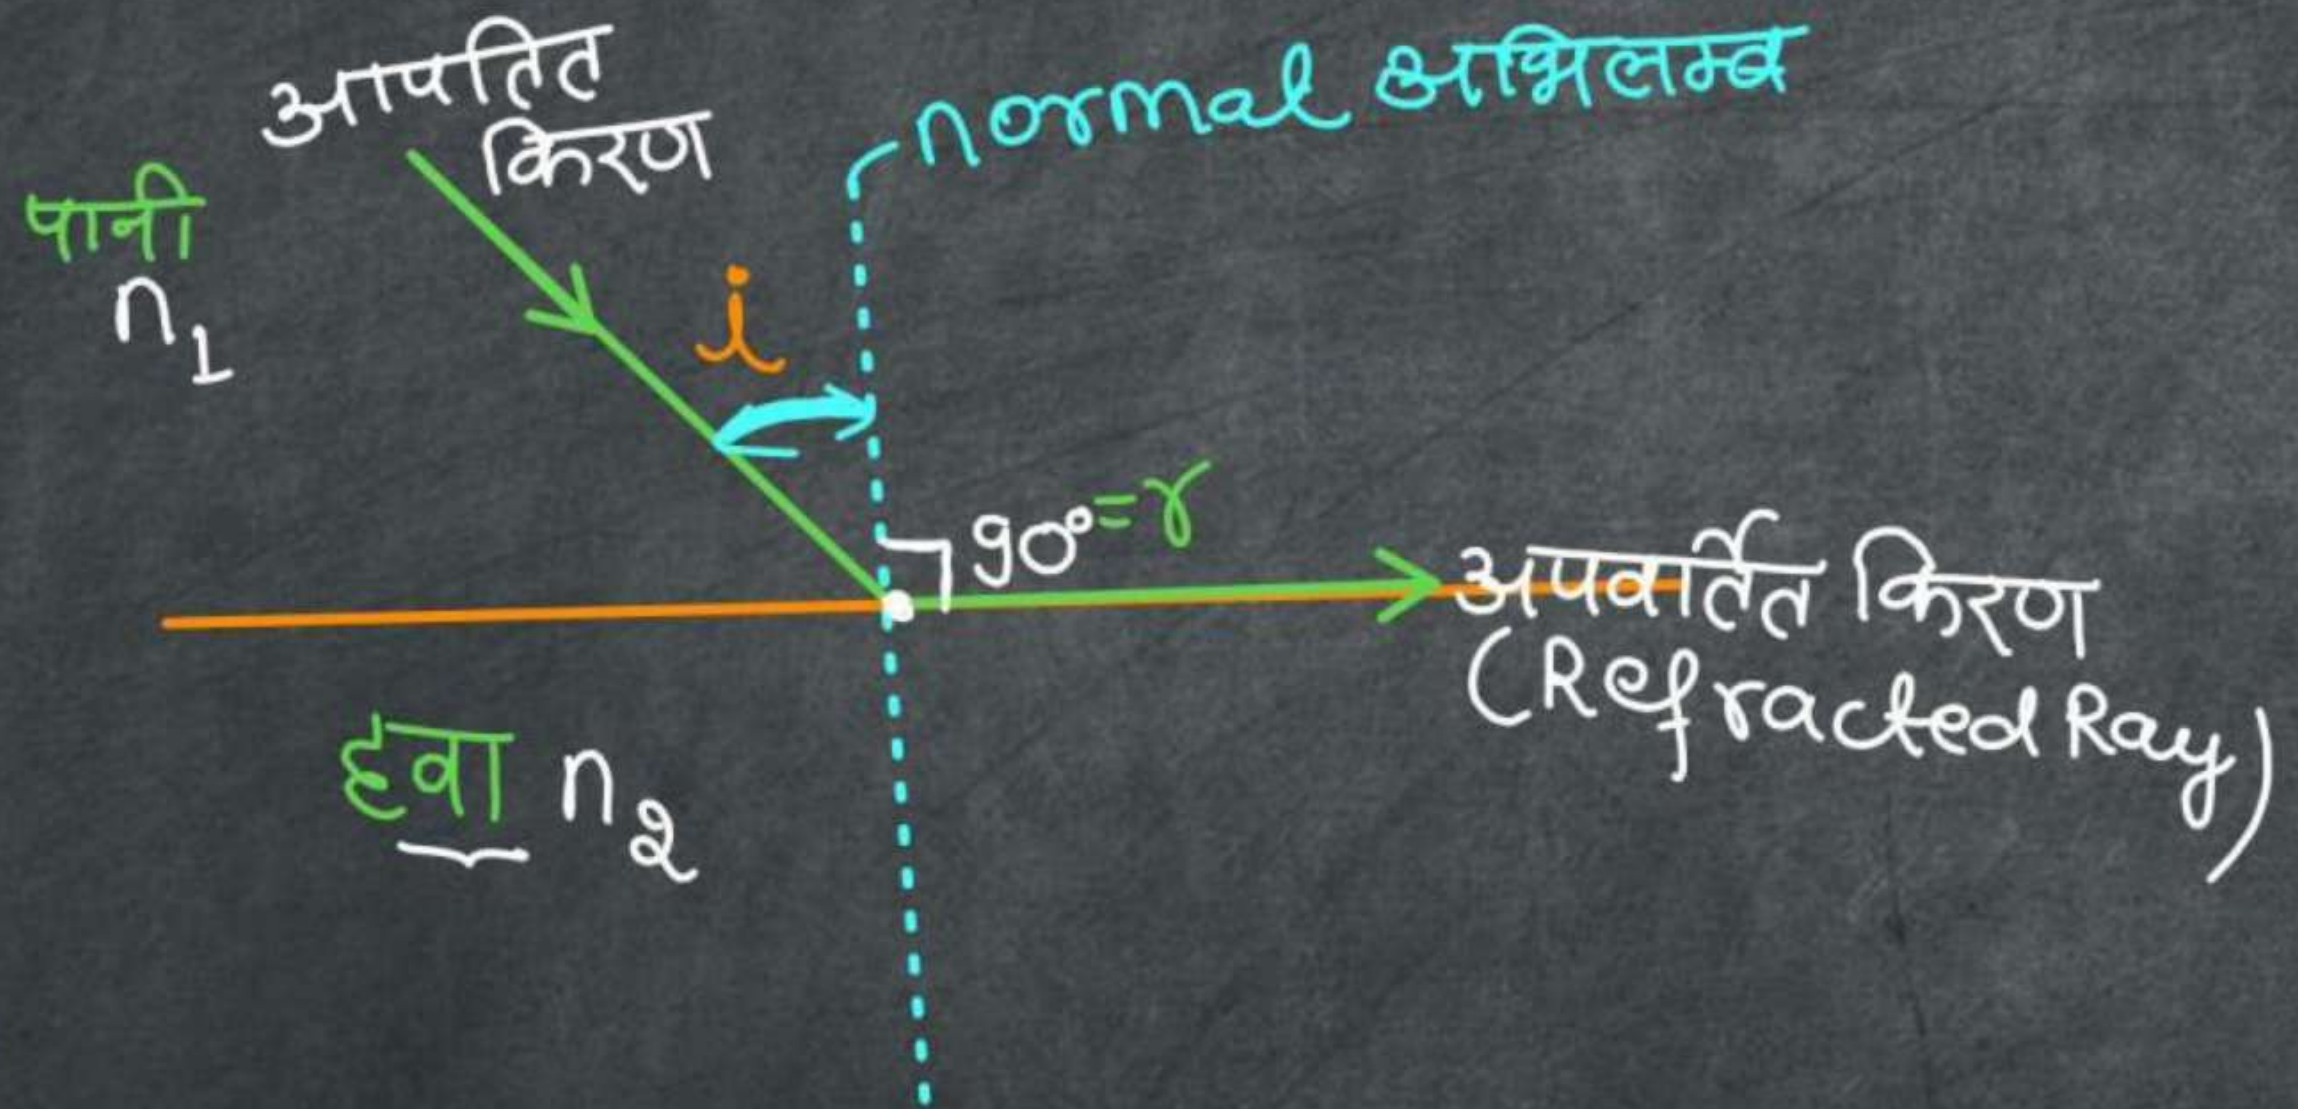 आपतित
किरण
normal अभिलम्ब
पानी
n₁
i
90°=r
अपवर्तित किरण
(Refracted Ray)
हवा n₂